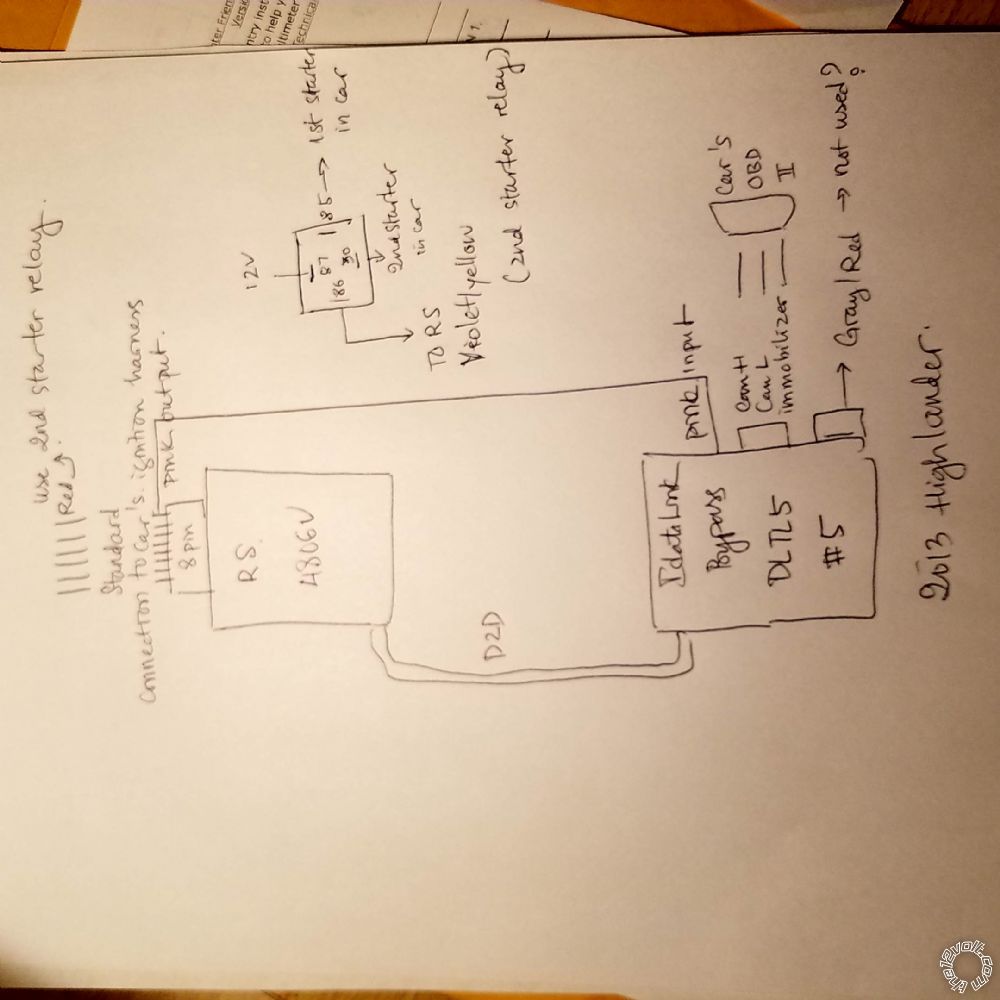 use 2nd starter relay.
Red
Standard
Connection to Car's ignition harness
pink output.
8 pin
RS
4806V
D2D
12V
87
86 30 85 → 1st starter
in car
2nd starter
in car
TO RS
Violet/yellow
(2nd starter relay)
pink input
Idatalink
Bypass
DLTL5
#5
Can H
Can L
immobilizer
Car's
OBD
II
→ Gray/Red → not used?
2013 Highlander.
ntry inst
to help y
ltimeter
echnical
Versi
the12volt.com